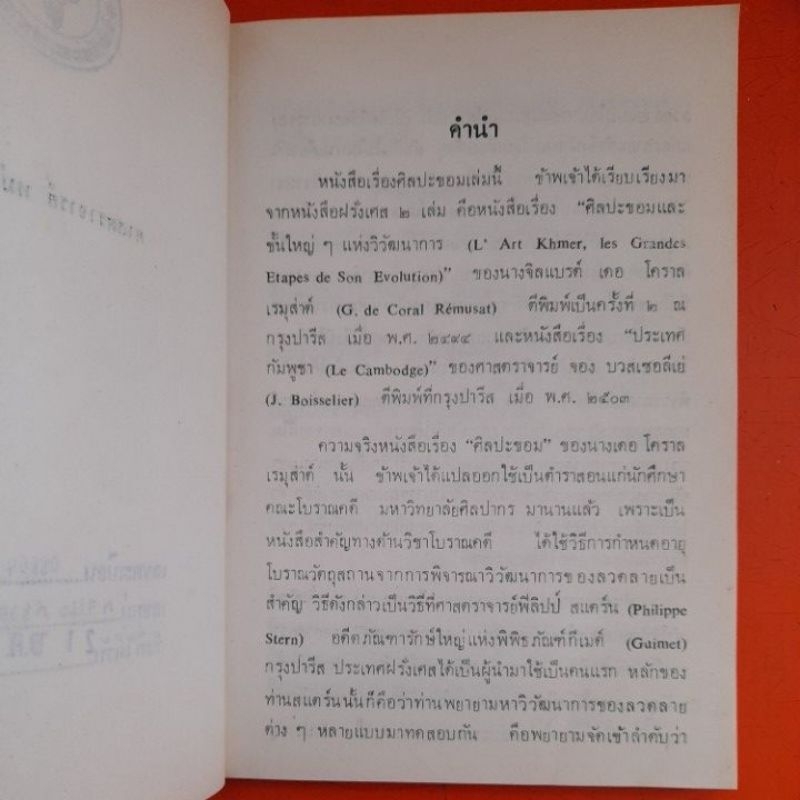 คำนำ
หนังสือเรื่องศิลปะขอมเล่มนี้ ข้าพเจ้าได้เรียบเรียงมา
จากหนังสือฝรั่งเศส ๒ เล่ม คือหนังสือเรื่อง “ศิลปะขอมและ
ขั้นใหญ่ ๆ แห่งวิวัฒนาการ (L' Art Khmer, les Grandes
Etapes de Son Evolution)” ของนางจิลแบรต์ เดอ โคราล
เรมูส่าต์ (G. de Coral Rémusat) ตีพิมพ์เป็นครั้งที่ ๒ ณ
กรุงปารีส เมื่อ พ.ศ. ๒๔๙๔ และหนังสือเรื่อง “ประเทศ
กัมพูชา (Le Cambodge)” ของศาสตราจารย์ จอง บวสเซอลีเย่
(J. Boisselier) ตีพิมพ์ที่กรุงปารีส เมื่อ พ.ศ. ๒๕๐๓
ความจริงหนังสือเรื่อง “ศิลปะขอม” ของนางเดอ โคราล
เรมูส่าต์ นั้น ข้าพเจ้าได้แปลออกใช้เป็นตำราสอนแก่นักศึกษา
คณะโบราณคดี มหาวิทยาลัยศิลปากร มานานแล้ว เพราะเป็น
หนังสือสำคัญทางด้านวิชาโบราณคดี ได้ใช้วิธีการกำหนดอายุ
โบราณวัตถุสถานจากการพิจารณาวิวัฒนาการของลวดลายเป็น
สำคัญ วิธีดังกล่าวเป็นวิธีที่ศาสตราจารย์ฟีลิปป์ สแตร์น (Philippe
Stern) อดีตภัณฑารักษ์ใหญ่แห่งพิพิธภัณฑ์กีเมต์ (Guimet)
กรุงปารีส ประเทศฝรั่งเศสได้เป็นผู้นำมาใช้เป็นคนแรก หลักของ
ท่านสแตร์นนั้นก็คือว่าท่านพยายามหาวิวัฒนาการของลวดลาย
ต่าง ๆ หลายแบบมาทดสอบกัน คือพยายามจัดเข้าลำดับว่า